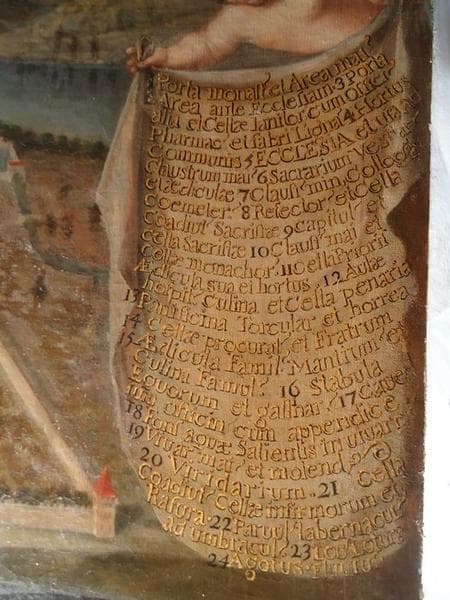 1 Porta monast: et Area mai: 2
Area ante Ecclesiam 3 Porta
alta et Cellæ Janitor cum offic:
Pharmac: et fabri Lignar: 4 Hortus
Communis 5 ECCLESIA et
Claustrum mai: 6 Sacrarium
et ædiculæ 7 Claus: min: Colloq:
Cœmeter: 8 Refector: et Cella
Coadiut: Sacristæ 9 Capitul: et
Cella Sacristæ 10 Claus: mai: et
Cellæ monachor: 11 Cella Priori
Ædicula sua et hortus 12 Aulæ
hospit: Culina et Cella Penaria
13 Panificina Torcular et horrea
14 Cellæ procurat: et Fratrum
15 Ædicula Famil: Mantrium et
Culina Famul: 16 Stabula
Equorum et gallinar: 17
officin: cum appendic:
18 Fons aquæ Salientis in vivari
19 Vivar: mai: et molend:
20 Viridarium 21 Cella
Coadiut: Cellæ infirmorum et
Rasura 22 Parvul: tabernacul:
ad umbracul: 23
24